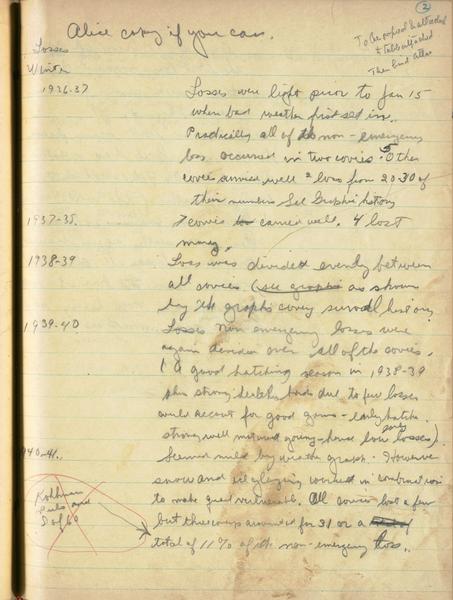 2
Alice copy if you can.
To be proposed & attached
& tabb attached
Then Bind Atlas
Losses
Winter
1936-37
Losses were light prior to Jan 15
when bad weather first set in.
Practically all of the non-emergency
loss occurred in two covies. 5 Other
covies survived well 2 loss from 20-30 of
their numbers See Graphic history
1937-38.
7 covies carried well. 4 lost
many.
1938-39
Loss was divided evenly between
all covies (see graphs as shown
by the graphs covey survival history
1939-40
Losses non emergency losses were
again divided over all of the covies.
( A good hatching season in 1938-39
plus strong healthy birds due to few losses
would account for good gains - early hatche
strong well matured young - hence low early losses)
1940-41.
Seemed mild by weather graph. However
snow and icy glazing worked in combination
to make quail vulnerable. All covies lost a few
but three coveys accounted for 31 or a
total of 11% of the non-emergency loss.
and